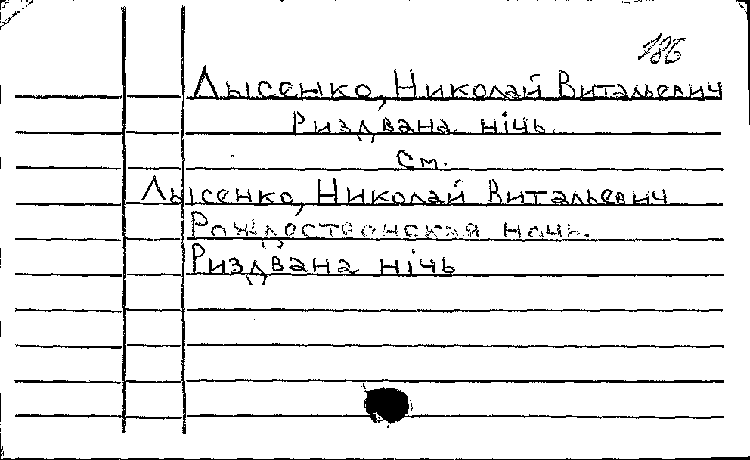 186
Лысенко, Николай Витальевич
Риздвана нiчь.
См.
Лысенко, Николай Витальевич
Рождественская ночь.
Риздвана нiчь